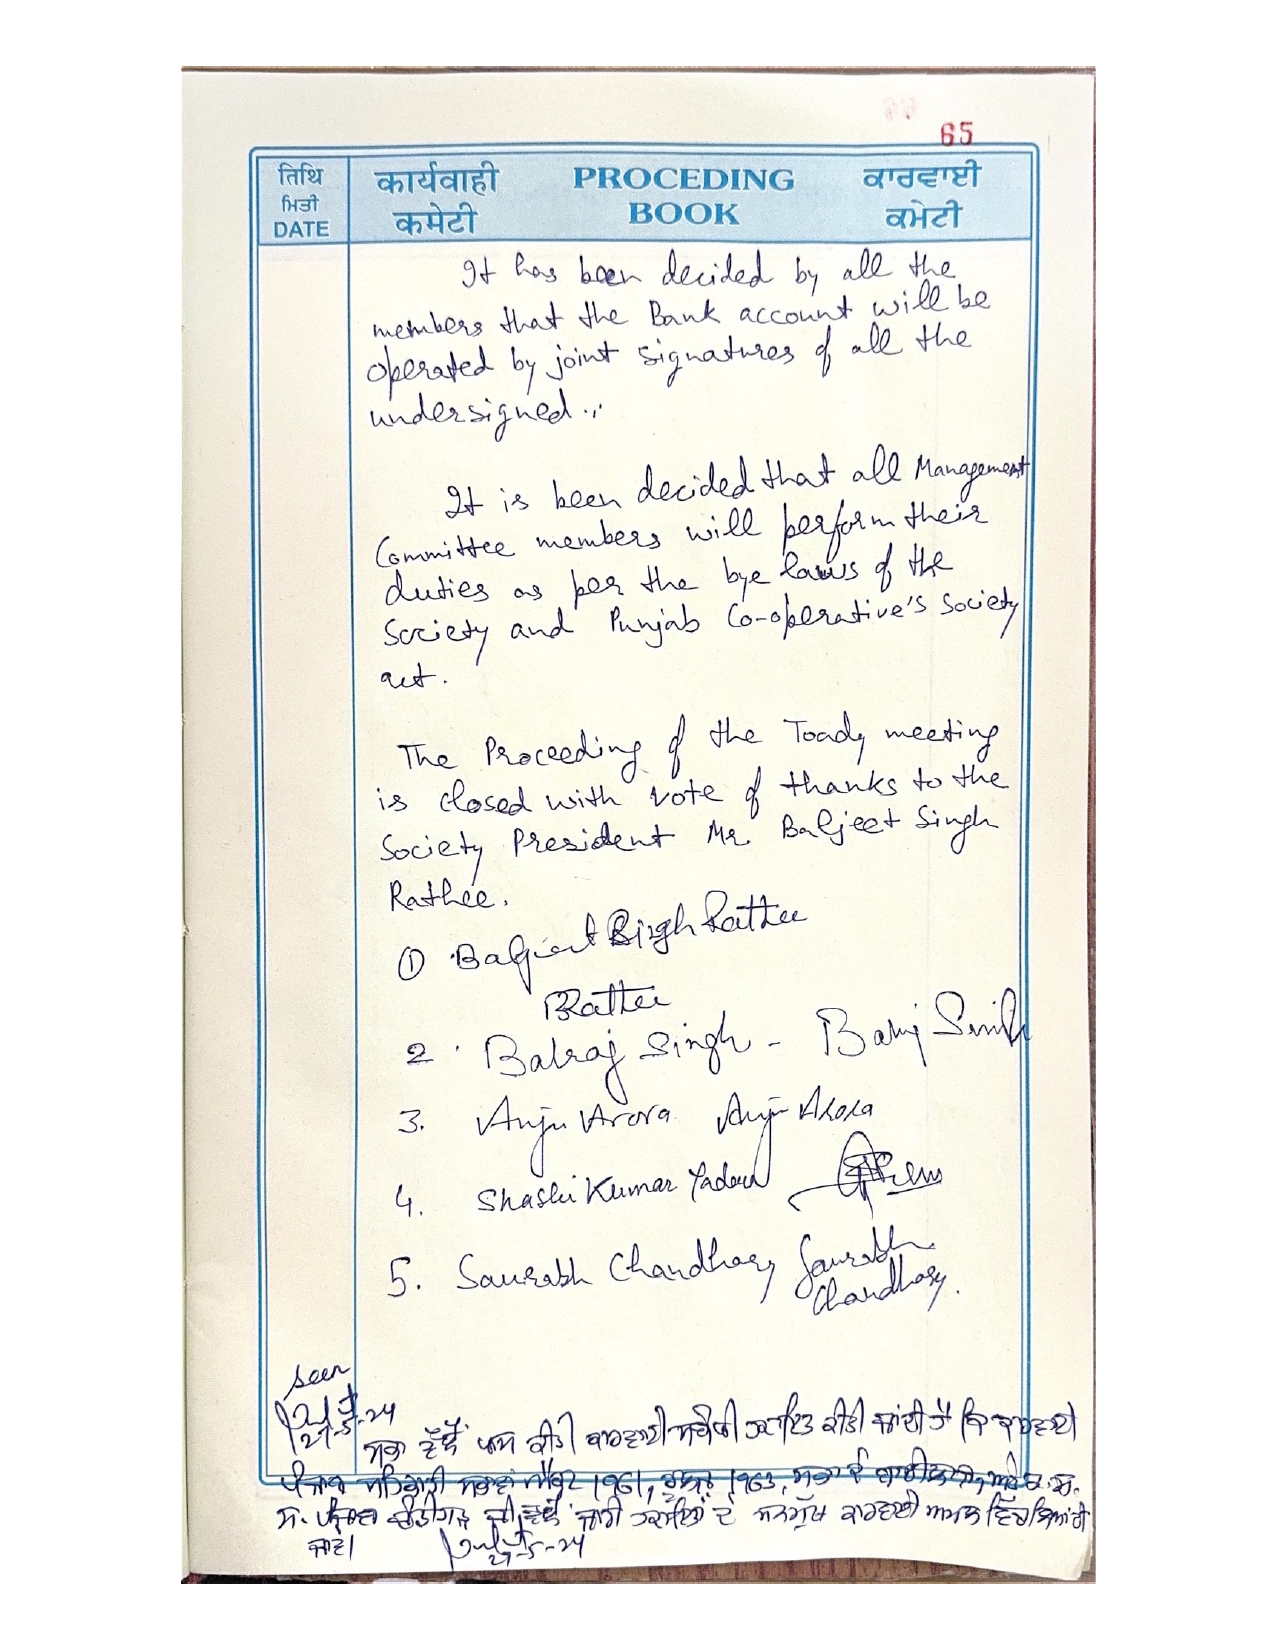 65
तिथि
ਮਿਤੀ
DATE
कार्यवाही PROCEDING ਕਾਰਵਾਈ
कमेटी BOOK ਕਮੇਟੀ
It has been decided by all the
members that the Bank account will be
operated by joint signatures of all the
undersigned.
It is been decided that all Management
Committee members will perform their
duties as per the bye laws of the
Society and Punjab Co-operative's Society
act.
The Proceeding of the Toady meeting
is closed with vote of thanks to the
Society President Mr. Baljeet Singh
Rathee.
① Baljeet Singh Rathee
BRathee
2. Balraj Singh - Balraj Singh
3. Anju Arora Anju Arora
4. Shashi Kumar Yadav
5. Saurabh Chandhary Saurabh
Chandhary.
seen
27-5-24
ਸਭਾ ਵੱਲੋਂ ਪਾਸ ਕੀਤੀ ਕਾਰਵਾਈ ਕੀਤੀ ਜਾਂਦੀ ਹੈ ਕਿ ਕਾਰਵਾਈ
ਪੰਜਾਬ ਸਹਿਕਾਰੀ ਸਭਾਵਾਂ ਐਕਟ 1961, ਰੂਲਜ਼ 1963, ਸਭਾ ਦੇ
ਚੰਡੀਗੜ੍ਹ ਜੀ ਵੱਲੋਂ ਜਾਰੀ ਹਦਾਇਤਾਂ ਦੇ ਸਨਮੁੱਖ ਕਾਰਵਾਈ ਅਮਲ ਵਿੱਚ ਲਿਆਂਦੀ
ਜਾਵੇ।
27-5-24